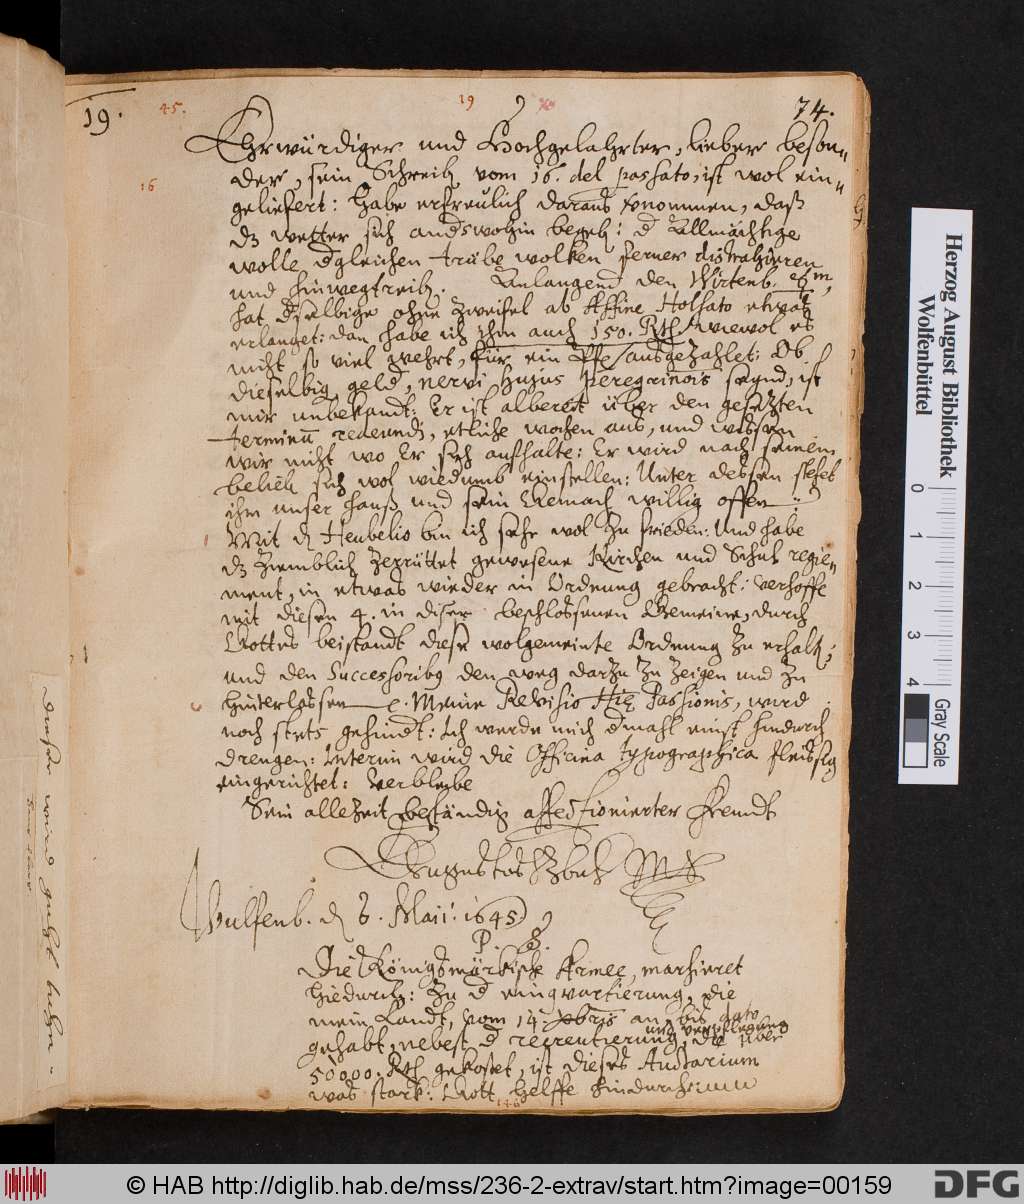 19.
45.
19
74.
16
Ehrwürdiger und Hochgelahrter, lieber beson-
der, sein Schreib. vom 16. del passato, ist wol ein-
geliefert: habe erfreulich daraus vernommen, daß
dz wetter sich anderswohin begeb: d Allmächtige
wolle dgleichen trübe wolken ferner distrahieren
und hinwegtreib. Anlangend den Wirtenb.
hat dselbige ohne Zweifel ab Affine Holsato etwas
erlanget: dan habe ich ihm auch 150. Rth. wiewol es
nicht so viel wehrt, für ein Pfe. ausgezahlet: Ob
dieselbig geld, nervi hujus peregrinois seynd, ist
mir unbekandt: Er ist albereit über den gesetzten
terminū redeundi, etliche wochen aus, und wissen
wir nicht wo Er sich aufhalte: Er wird nach seinem
belieb. sich wol wiedumb einstellen: Unter dessen stehet
ihm unser hauß und sein Gemach willig offen
Mit d Henbelio bin ich sehr wol zu frieden: Und habe
dz Ziemblich zerrüttet gewesene Kirchen und Schul regie-
ment, in etwas wieder in Ordnung gebracht: verhoffe
mit diesen 4. in diser beschlossenen Gemeine, durch
Gottes beistandt diese wolgemeinte Ordnung zu erhalt;
und den Successoribꝫ den weg darzu zu zeigen und zu
hinterlassen. Meine Revisio Passionis, wird
noch stets gehindt: Ich werde mich dmahl einst hindurch
drengen: Interim wird die Officina typographica fleissig
eingerichtet: Verbleibe
Sein allezeit beständig affectionierter Freundt
Augustus HzBuL Mp
Wulfenb. d 6. Maii: 1645
P. S.
Die Königsmärkische Armee, marsieret
hiedurch: zu d einquartierung, die
mein Landt, vom 14. xbris an bis dato
gehabt, nebest d recreutierung, und verpflegung die über
50000. Rth. gekostet, ist dieses Auctarium
was stark: Gott helffe hindurch
146
dieser wind gehet
Herzog August Bibliothek
Wolfenbüttel
0 1 2 3 4
Gray Scale
© HAB http://diglib.hab.de/mss/236-2-extrav/start.htm?image=00159
DFG